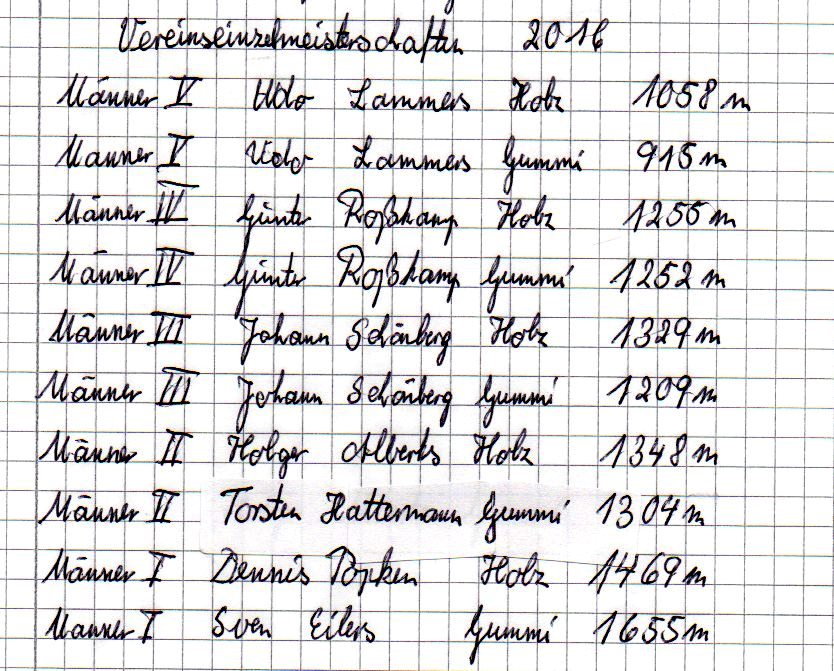 Vereinseinzelmeisterschaften 2016
Männer V Udo Lammers Holz 1058 m
Manner V Udo Lammers Gummi 915 m
Männer IV Günter Roßkamp Holz 1255 m
Männer IV Günter Roßkamp Gummi 1252 m
Männer III Johann Schönberg Holz 1329 m
Männer III Johann Schönberg Gummi 1209 m
Männer II Holger Alberts Holz 1348 m
Männer II Torsten Hattermann Gummi 1304 m
Männer I Dennis Popken Holz 1469 m
Manner I Sven Eilers Gummi 1655 m